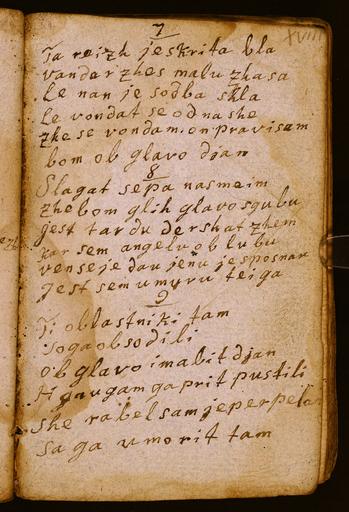 7
XVIII
Ta reizh jeskrita bla
vandar zhes malu zhasa
le nan je sodba skla
le vondat se od nashe
zhe se vondam on pravi sam
bom ob glavo djan
8
Slagat sepa nasmeim
zhe bom glih glavo sgubu
jest tardu dershat zhem
kar sem angelu oblubu
vense je dau jenu je sposnan
jest sem umuru tei ga
9
Ti oblastniki tam
soga obsodili
ob glavo ima bit djan
gaugam ga prit pustili
she rabel sam je perpela
sa ga umorit tam